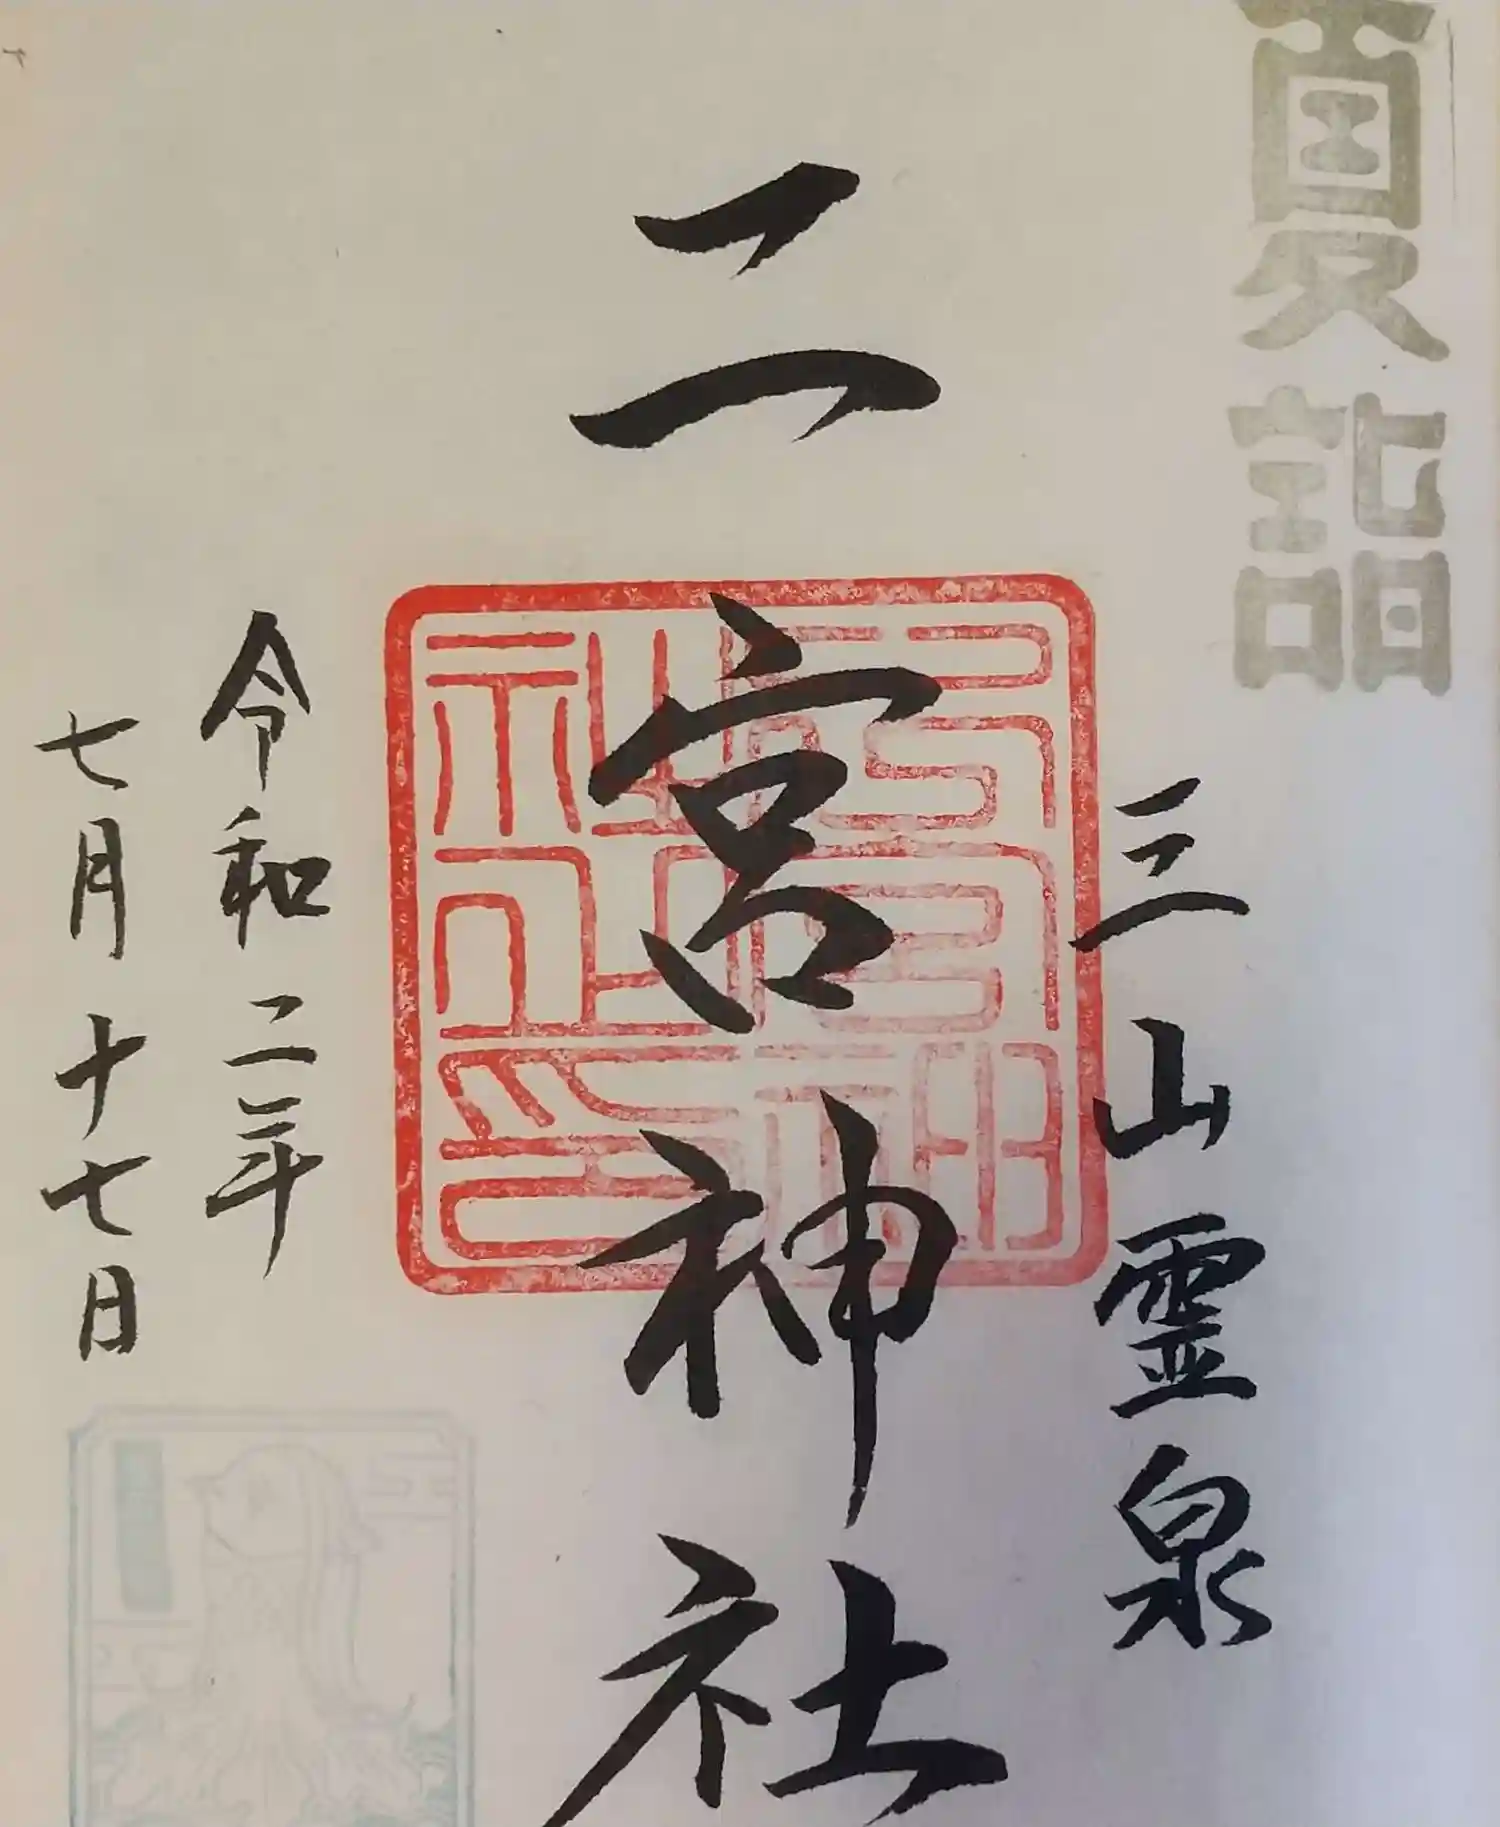 夏詣
三山霊泉
二宮神社
弓宮神社正印
令和二年
七月十七日